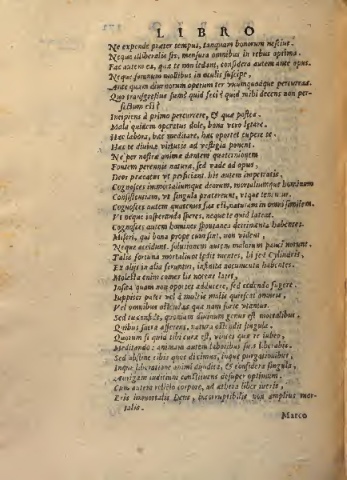 LIBRO
Ne expende præter tempus, tanquam bonorum nescius.
Neque illiberalis sis, mensura omnibus in rebus optima.
Fac autem ea, quæ te non lædant, considera autem ante opus.
Neque somnum mollibus in oculis suscipe,
Ante quam diurnorum operum ter unumquodque percurras.
Quo transgressus sum? quid feci? quid mihi decens non per-
fectum est?
Incipiens à primo percurrere, & quæ postea.
Mala quidem operatus dole, bona vero lætare.
Hæc labora, hæc meditare, hæc oportet cupere te.
Hæc te divinæ virtutis ad vestigia ponent.
Ne per nostræ animæ dantem quaternionem
Fontem perennis naturæ, sed vade ad opus,
Deos precatus ut perficiant. his autem imperatis,
Cognosces immortaliumque deorum, mortaliumque hominum
Consistentiam, ut singula prætereunt, utque tenentur.
Cognosces autem quatenus fas est, naturam in omni similem.
Ut neque insperanda speres, neque te quid lateat.
Cognosces autem homines spontanea detrimenta habentes.
Miseri, qui bona prope cum sint, non vident,
Neque audiunt. solutionem autem malorum pauci norunt.
Talis fortuna mortalium lædit mentes, hi sed Cylindris,
Ex aliis in alia feruntur, infinita nocumenta habentes.
Molesta enim comes lis nocens latet,
Iuppiter pater vel à multis malis
Vel omnibus
Sed tu confide, quoniam divinum genus est mortalibus,
Quibus sacra afferens, natura ostendit singula.
Quorum si quid tibi cura est, vinces quæ te iubeo,
Meditando: animam autem laboribus
Sed abstine cibis quos diximus, inque purgationibus,
Inque liberatione animi & considera singula,
Aurigam iudicium constituens desuper optimum.
Cum autem relicto corpore, ad æthera liber ieris,
Eris immortalis Deus, incorruptibilis non amplius mor-
talis.
Marco